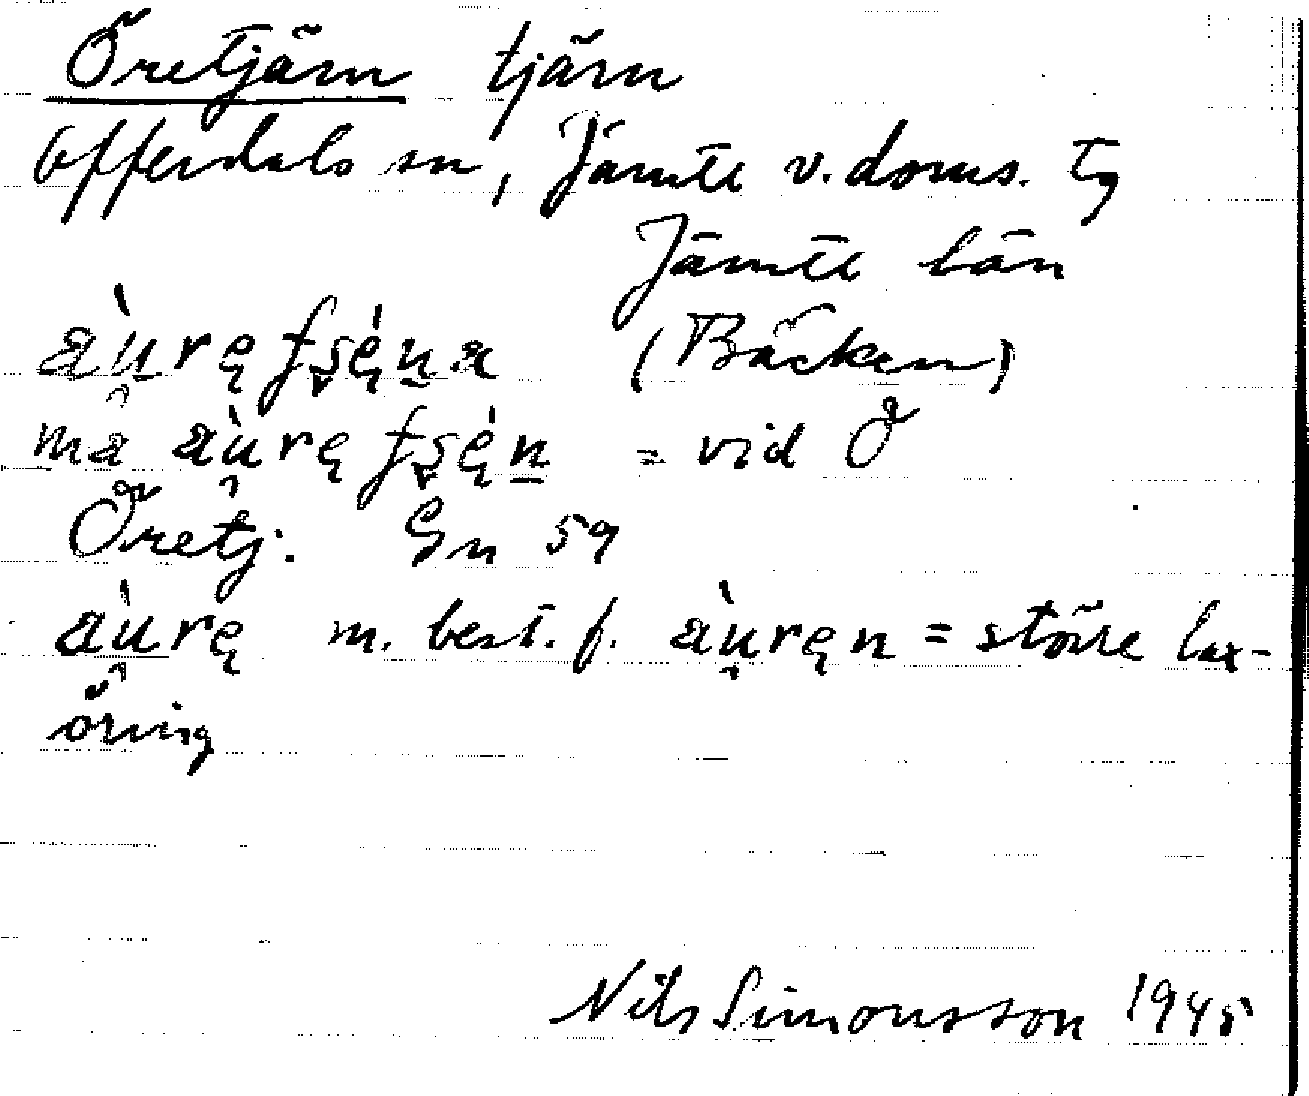 Öretjärn tjärn
Offerdals sn, Jämtl v. doms. tg
Jämtl län
àu̯rę tʂę́n̲a (Bäcken)
mä àu̯rę tʂę́n̲ = vid Ö
Öretj. Gn 59
àu̯rę m. best. f. àu̯ręn = större lax-
öring
Nils Simonsson 1945